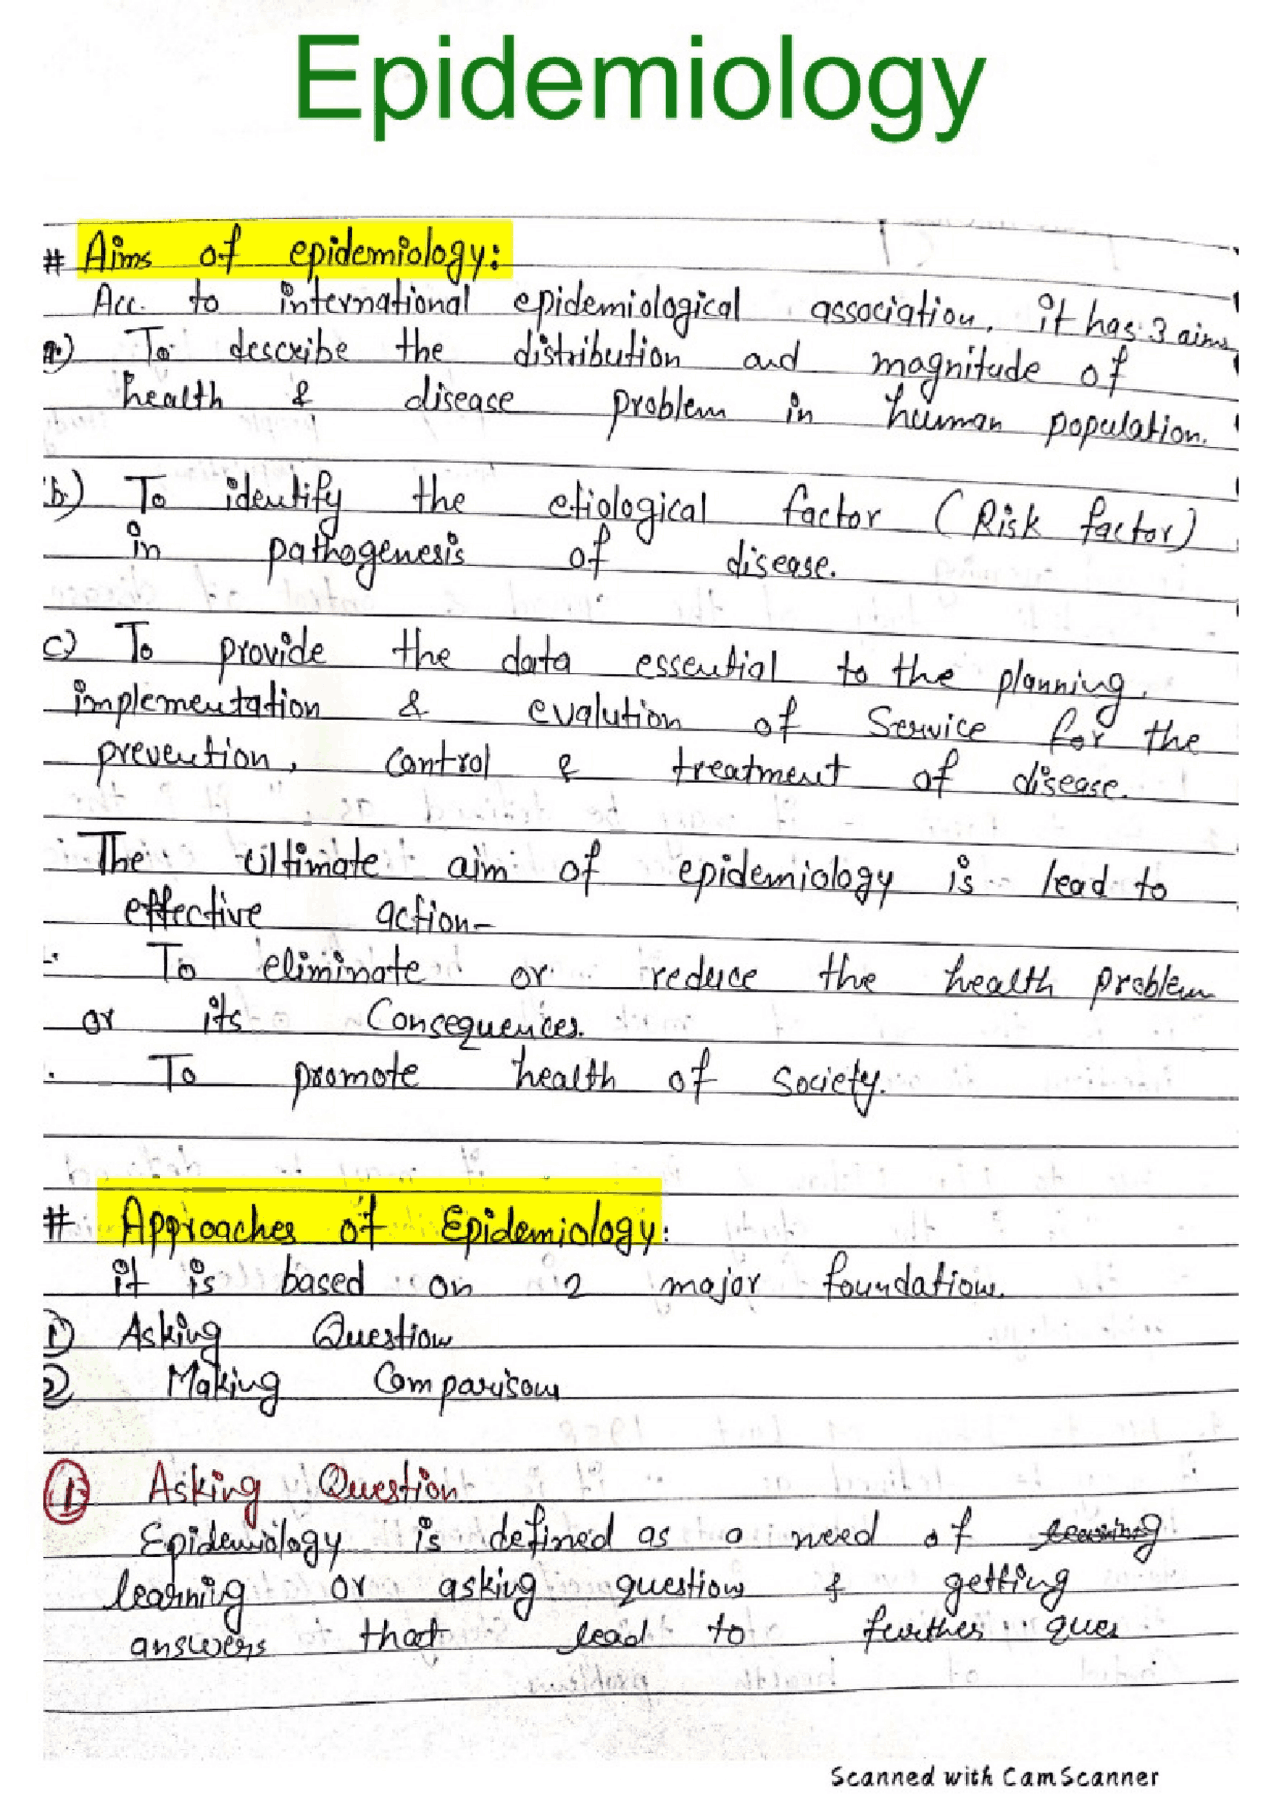 Epidemiology
# Aims of epidemiology:
Acc. to international epidemiological association, it has 3 aims
a.) To describe the distribution and magnitude of
health & disease problem in human population.
b.) To identify the etiological factor (Risk factor)
in pathogenesis of disease.
c) To provide the data essential to the planning,
implementation & evalution of Service for the
prevention, control & treatment of disease.
The ultimate aim of epidemiology is lead to
effective action-
· To eliminate or reduce the health problem
or its Consequences.
· To promote health of Society.
# Approaches of Epidemiology:
it is based on 2 major foundation.
① Asking Question
② Making Comparison
① Asking Question
Epidemiology is defined as a need of learning
learning or asking question & getting
answers that lead to further ques
Scanned with CamScanner